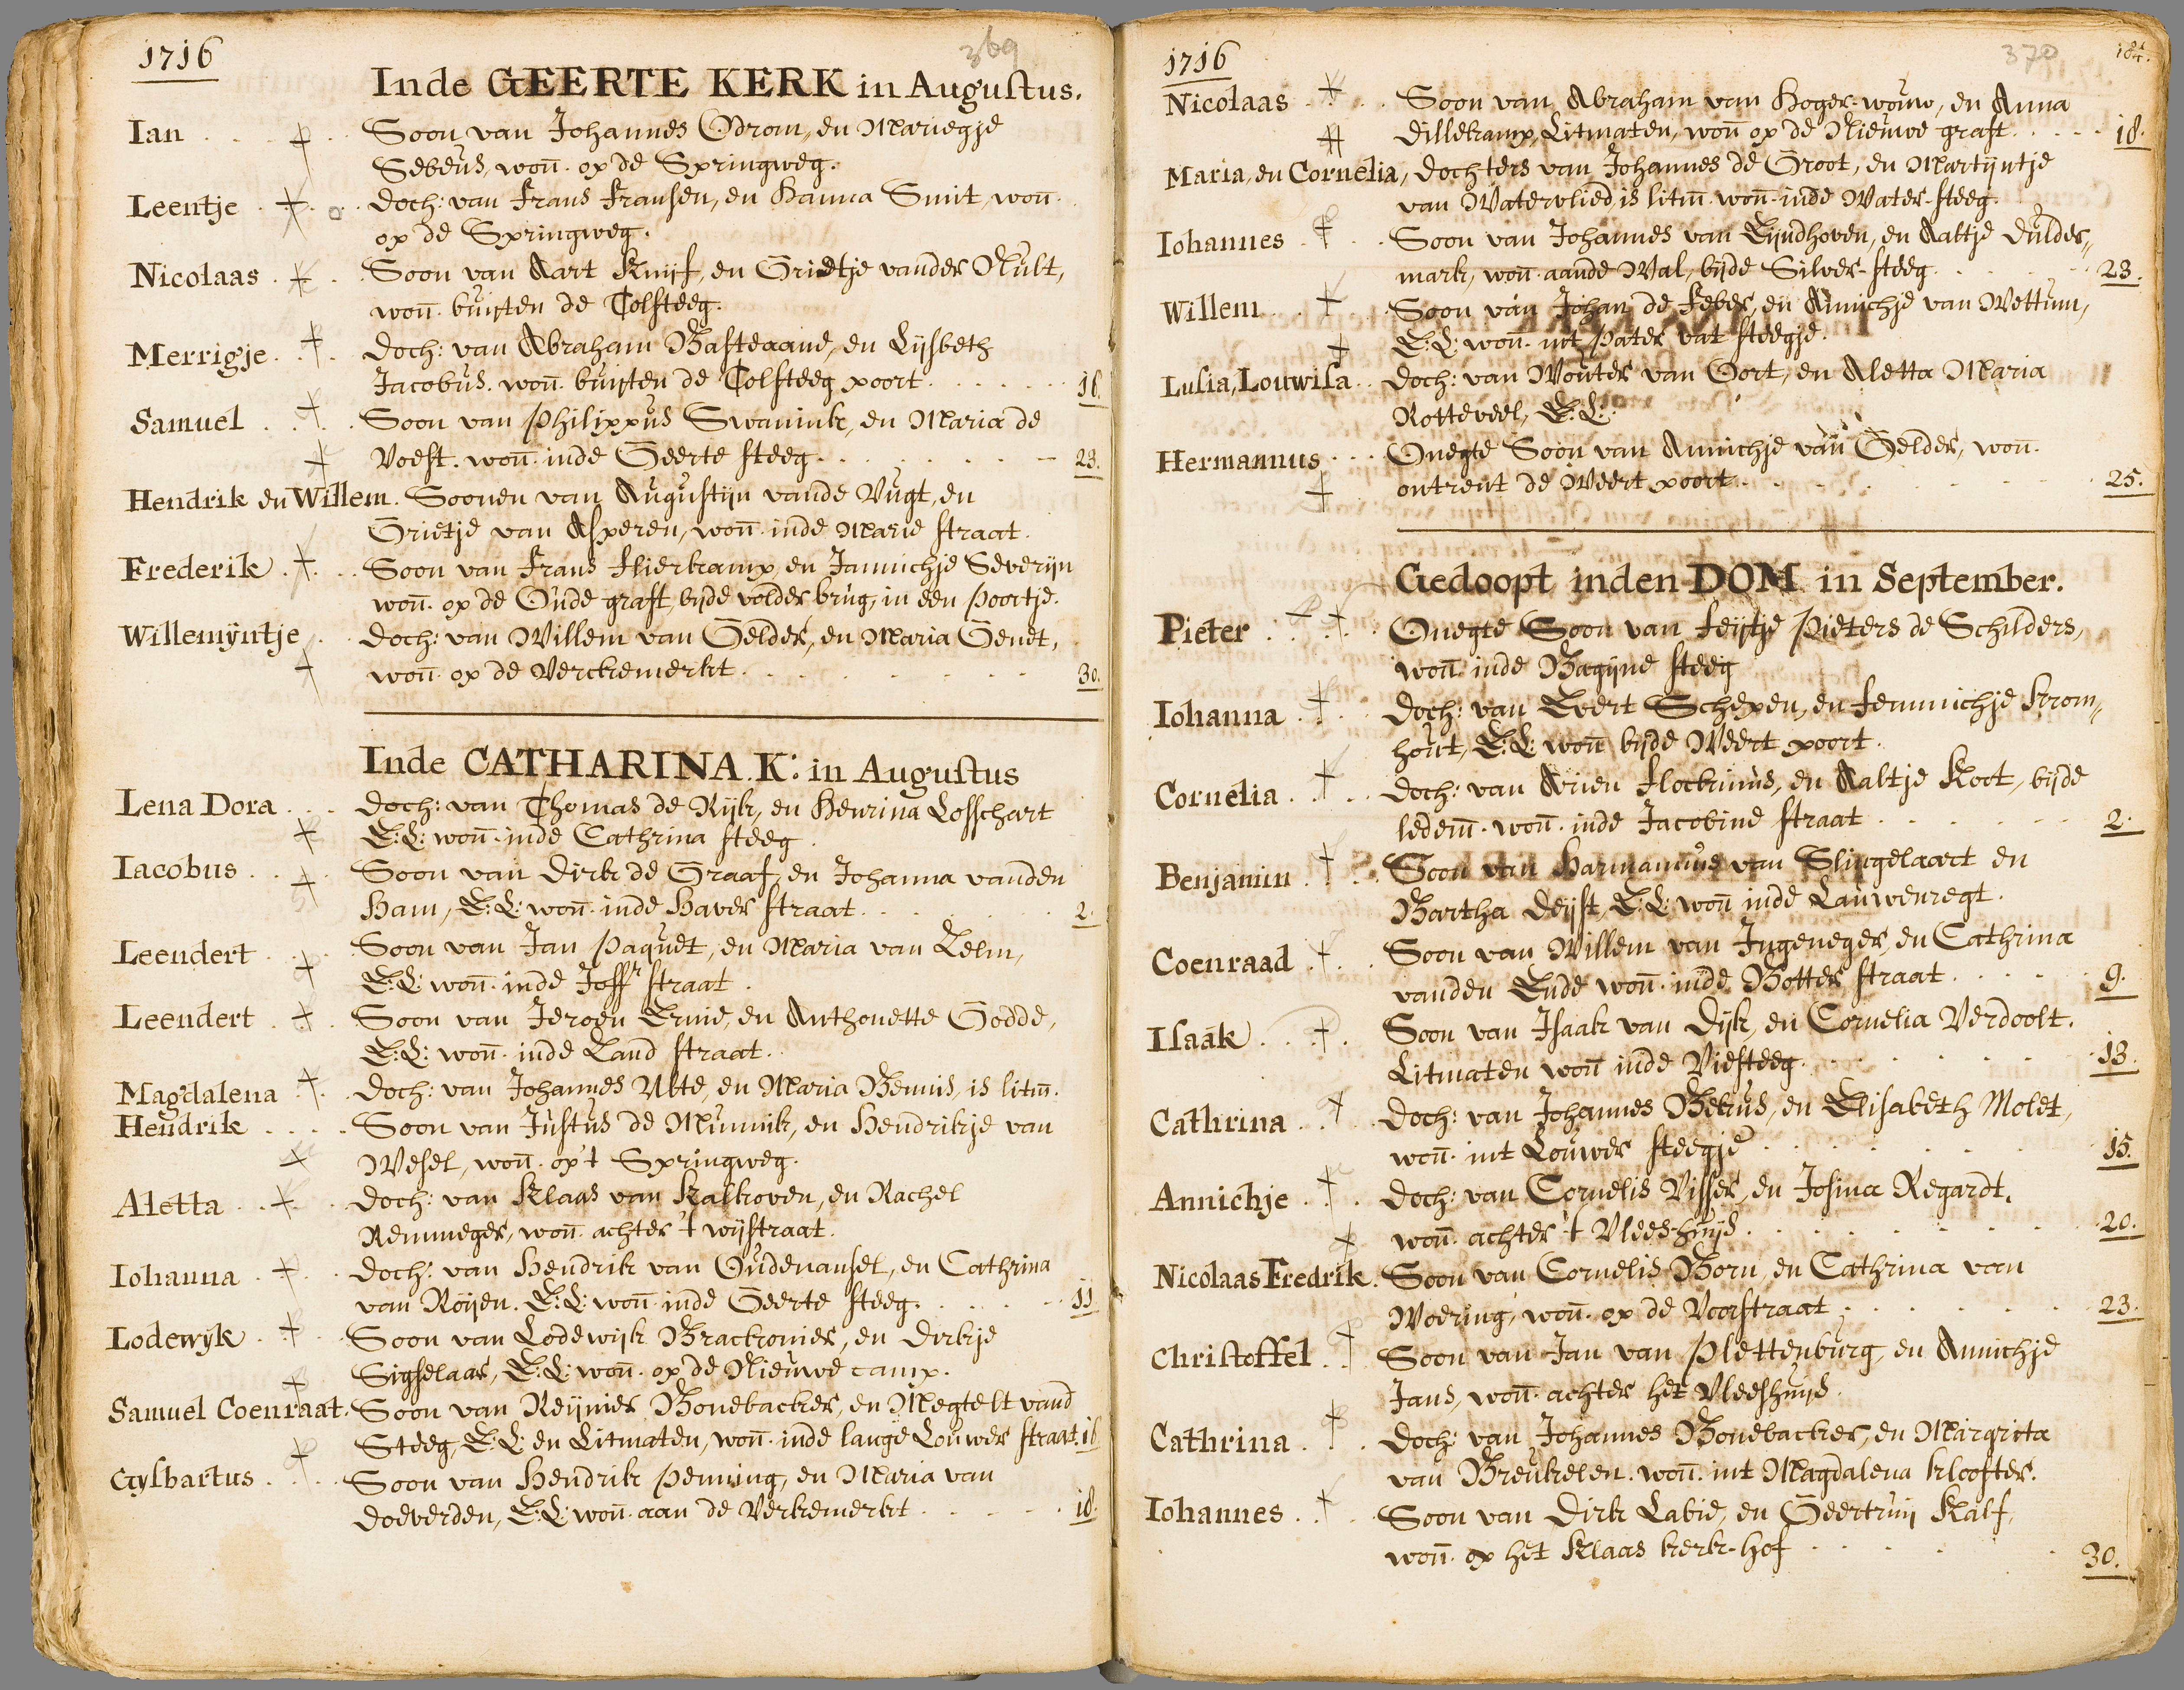 1716
369
Inde GEERTE KERK in Augustus.
Ian . . . Soon van Johannes Odrom, en Marregje
Sebeus, won̄. op de Springweg.
Leentje . . . Doch: van Frans Fransen, en Hanna Smit, won̄.
op de Springweg.
Nicolaas . . . Soon van Aart Knijf, en Grietje vander Nult,
won̄. buijten de Tolsteeg.
Merrigje . . . Doch: van Abraham Basteaane, en Lijsbeth
Jacobus. won̄. buijten de Tolsteeg poort . . . . . 16.
Samuel . . . Soon van Philippus Swanink, en Maria de
Voest. won̄. inde Geerte steeg . . . . . 23.
Hendrik en Willem. Soonen van Augustijn vande Vugt, en
Grietje van Asperen, won̄. inde Marie straat.
Frederik . . . Soon van Frans Flierkamp, en Jannichje Severijn
won̄. op de Oude graft, bijde volder brug, in een Poortje.
Willemÿntje . . . Doch: van Willem van Gelder, en Maria Genet,
won̄. op de Verckemerkt . . . . . 30.
Inde CATHARINA. K: in Augustus
Lena Dora . . . Doch: van Thomas de Rijk, en Henrina Losschart
E:L: won̄. inde Cathrina steeg.
Iacobus . . . Soon van Dirk de Graaf, en Johanna vanden
Ham, E:L: won̄. inde Haver straat . . . . . 2.
Leendert . . . Soon van Jan Paquet, en Maria van Zelm,
E:L: won̄. inde Joffr straat.
Leendert . . . Soon van Jeroen Ernie, en Anthonette Godde,
E:L: won̄. inde Zand straat.
Magdalena . . . Doch: van Johannes Abte, en Maria Bennis, is litm̄.
Hendrik . . . Soon van Justus de Munnik, en Hendrikje van
Wesel, won̄. op't Springweg.
Aletta . . . Doch: van Klaas van Kalkoven, en Rachel
Remmeger, won̄. achter 't wijstraat.
Iohanna . . . Doch: van Hendrik van Oudenansel, en Cathrina
van Roijen. E:L: won̄. inde Geerte steeg . . . . . 11
Lodewÿk . . . Soon van Lodewijk Brackonier, en Dirkje
Sigselaar, E:L: won̄. op de Nieuwe camp.
Samuel Coenraat. Soon van Reijnier Bonebacker, en Megtelt vand
Steeg, E:L: en Litmaten, won̄. inde lange Louwer straat. 16
Gÿsbartus . . . Soon van Hendrik Penning, en Maria van
Doeverden, E:L: won̄. aan de Verkemerkt . . . . . 18.
1716
370
184.
Nicolaas . . . Soon van Abraham van Hoger-wouw, en Anna
Dillekamp, Litmaten, won̄ op de Nieuwe graft . . . . . 18.
Maria, en Cornelia, Dochters van Johannes de Groot, en Martijntje
van Watervliedt, is litm̄. won̄. inde Water-steeg.
Iohannes . . . Soon van Johannes van Eijndhoven, en Aaltje Dulder,,
mark, won̄. aande Wal, bijde Silver-steeg . . . . . 23.
Willem . . . Soon van Johan de Feber, en Annichje van Wettum,
E:L: won̄. int Pater vat steegje.
Lusia, Louwisa . . Doch: van Wouter van Oort, en Aletta Maria
Rotteveel, E:L:
Hermannus . . . Onegte Soon van Annichje van Gelder, won̄.
ontrent de Weert poort . . . . . 25.
Gedoopt inden DOM in September.
Pieter . . . Onegte Soon van Feijtje Pieters de Schilders,
won̄ inde Bagijne steeg
Iohanna . . . Doch: van Evert Schepen, en Femmichje Krom,,
hout, E:L: won̄ bijde Weert poort.
Cornelia . . . Doch: van Arien Flockenius, en Aaltje Koot, bijde
ledem̄. won̄. inde Jacobine straat . . . . . 2.
Benjamin . . . Soon van Harmannus van Slingelaart en
Bartha Deijst, E:L: won̄ inde Lauwenregt.
Coenraad . . . Soon van Willem van Ingeneger, en Cathrina
vanden Ende won̄. inde Botter straat . . . . . 9.
Isaäk . . . Soon van Isaak van Dijk, en Cornelia Verdoolt.
Litmaten won̄ inde Viesteeg . . . . . 13.
Cathrina . . . Doch: van Johannes Bekus, en Elisabeth Molet,
won̄. int Louwer steegje . . . . . 15.
Annichje . . . Doch: van Cornelis Visser, en Josina Regardt,
won̄. achter 't Vlees-huijs . . . . . 20.
Nicolaas Fredrik. Soon van Cornelis Born, en Cathrina van
Woering, won̄. op de Voorstraat . . . . . 23.
Christoffel . . . Soon van Jan van Plettenburg, en Annichje
Jans, won̄. achter het Vleeshuijs.
Cathrina . . . Doch: van Johannes Bonebacker, en Margrita
van Breukelen. won̄. int Magdalena klooster.
Iohannes . . . Soon van Dirk Labie, en Geertruij Kalf,
won̄. op het Klaas kerk-hof . . . . . 30.